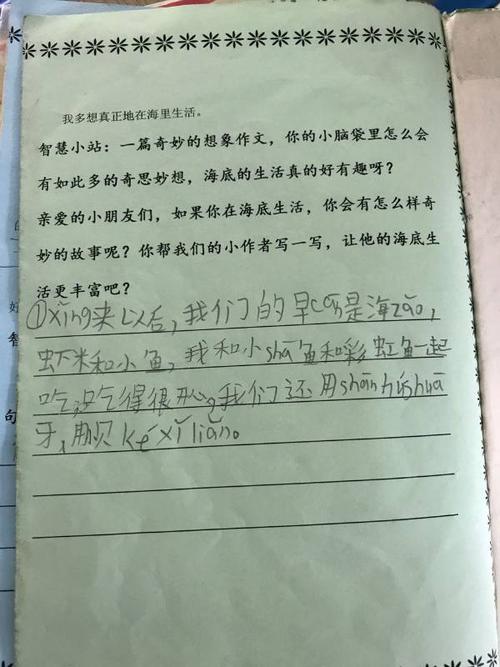 我多想真正地在海里生活。
智慧小站：一篇奇妙的想象作文，你的小脑袋里怎么会
有如此多的奇思妙想，海底的生活真的好有趣呀？
亲爱的小朋友们，如果你在海底生活，你会有怎么样奇
妙的故事呢？你帮我们的小作者写一写，让他的海底生
活更丰富吧？
①xǐng来以后，我们的早cān是海zǎo，
虾米和小鱼，我和小shā鱼和彩虹鱼一起
吃，吃得很开心，我们还用shān hú shuā
牙，用贝ké xǐ liǎn。